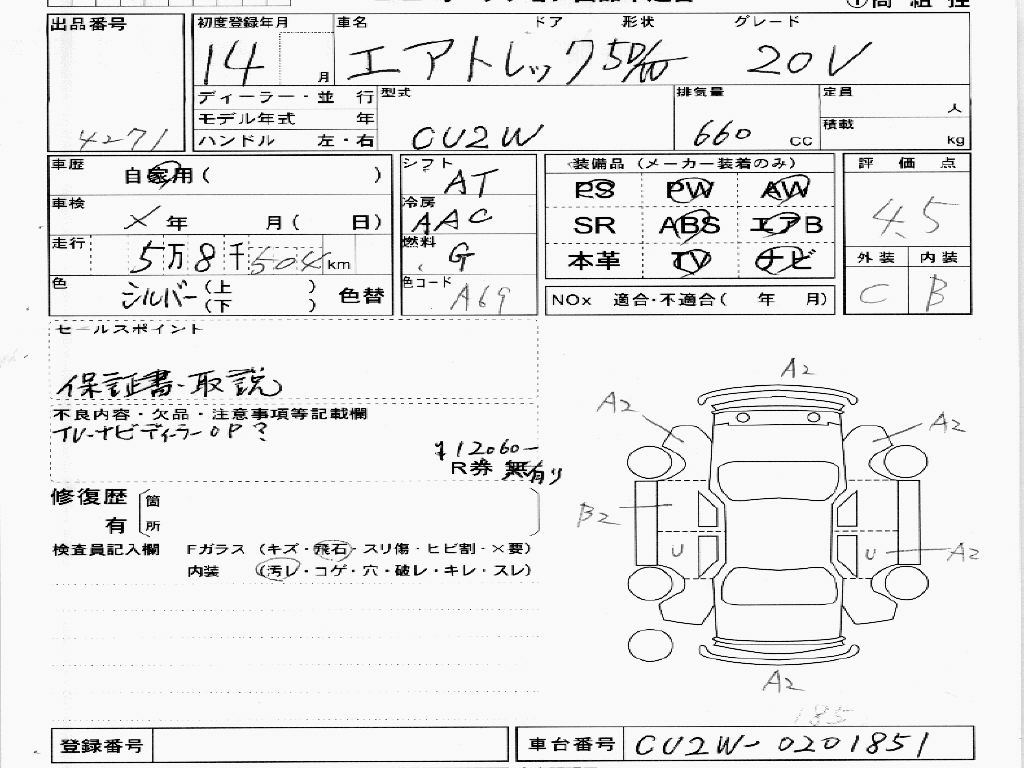 出品番号
4271
初度登録年月
14 月
車名 ドア 形状 グレード
エアトレック 20V
ディーラー・並 行
モデル年式 年
ハンドル 左・右
型式
CU2W
排気量
660 cc
定員
人
積載
kg
車歴
自家用( )
車検
× 年 月( 日)
走行
5万8千504km
色
シルバー (上 )
(下 ) 色替
シフト
AT
冷房
AAC
燃料
G
色コード
A69
装備品(メーカー装着のみ)
PS PW AW
SR ABS エアB
本革 TV ナビ
NOx 適合・不適合( 年 月)
評 価 点
4.5
外装 内装
C B
セールスポイント
保証書・取説
不良内容・欠品・注意事項等記載欄
TV・ナビディーラーOP?
¥12060-
R券 無 有り
修復歴 箇
有 所
検査員記入欄 Fガラス (キズ・飛石・スリ傷・ヒビ割・×要)
内装 (汚レ・コゲ・穴・破レ・キレ・スレ)
A2
A2
A2
B2
U
U
A2
A2
185
登録番号
車台番号 CU2W-0201851